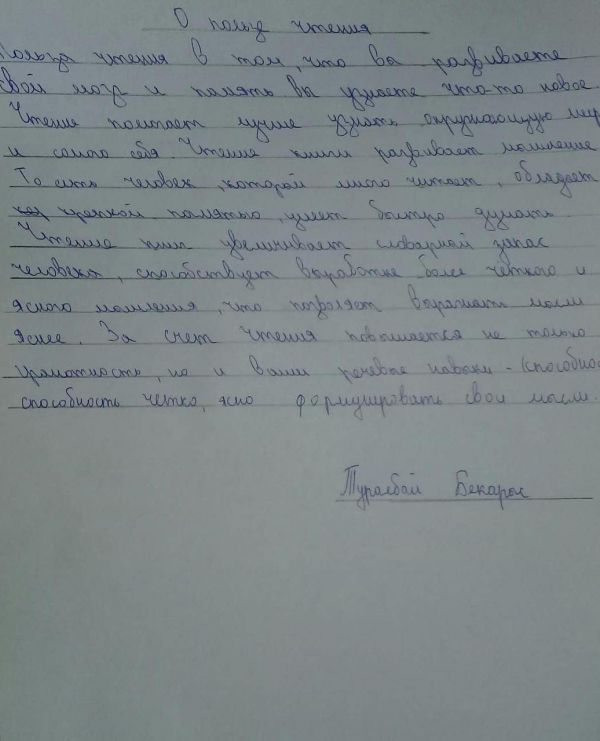 О пользе чтения
Польза чтения в том, что вы развиваете
свой мозг и память. вы узнаете что-то новое.
Чтение помогает лучше узнать окружающую мир
и самого себя. Чтение книги развивает мышление
То есть человек, которой много читает, обладает
крепкой памятью, умеет быстро думать.
Чтение книг увеличивает словарной запас
человека, способствует выработке более четкого и
ясного мышления, что позволяет выражать мысли
яснее. За счет чтения повышается не только
грамотность, но и ваши речевые навыки - (способнос
способность четко, ясно формулировать свои мысли.
Бекарыс